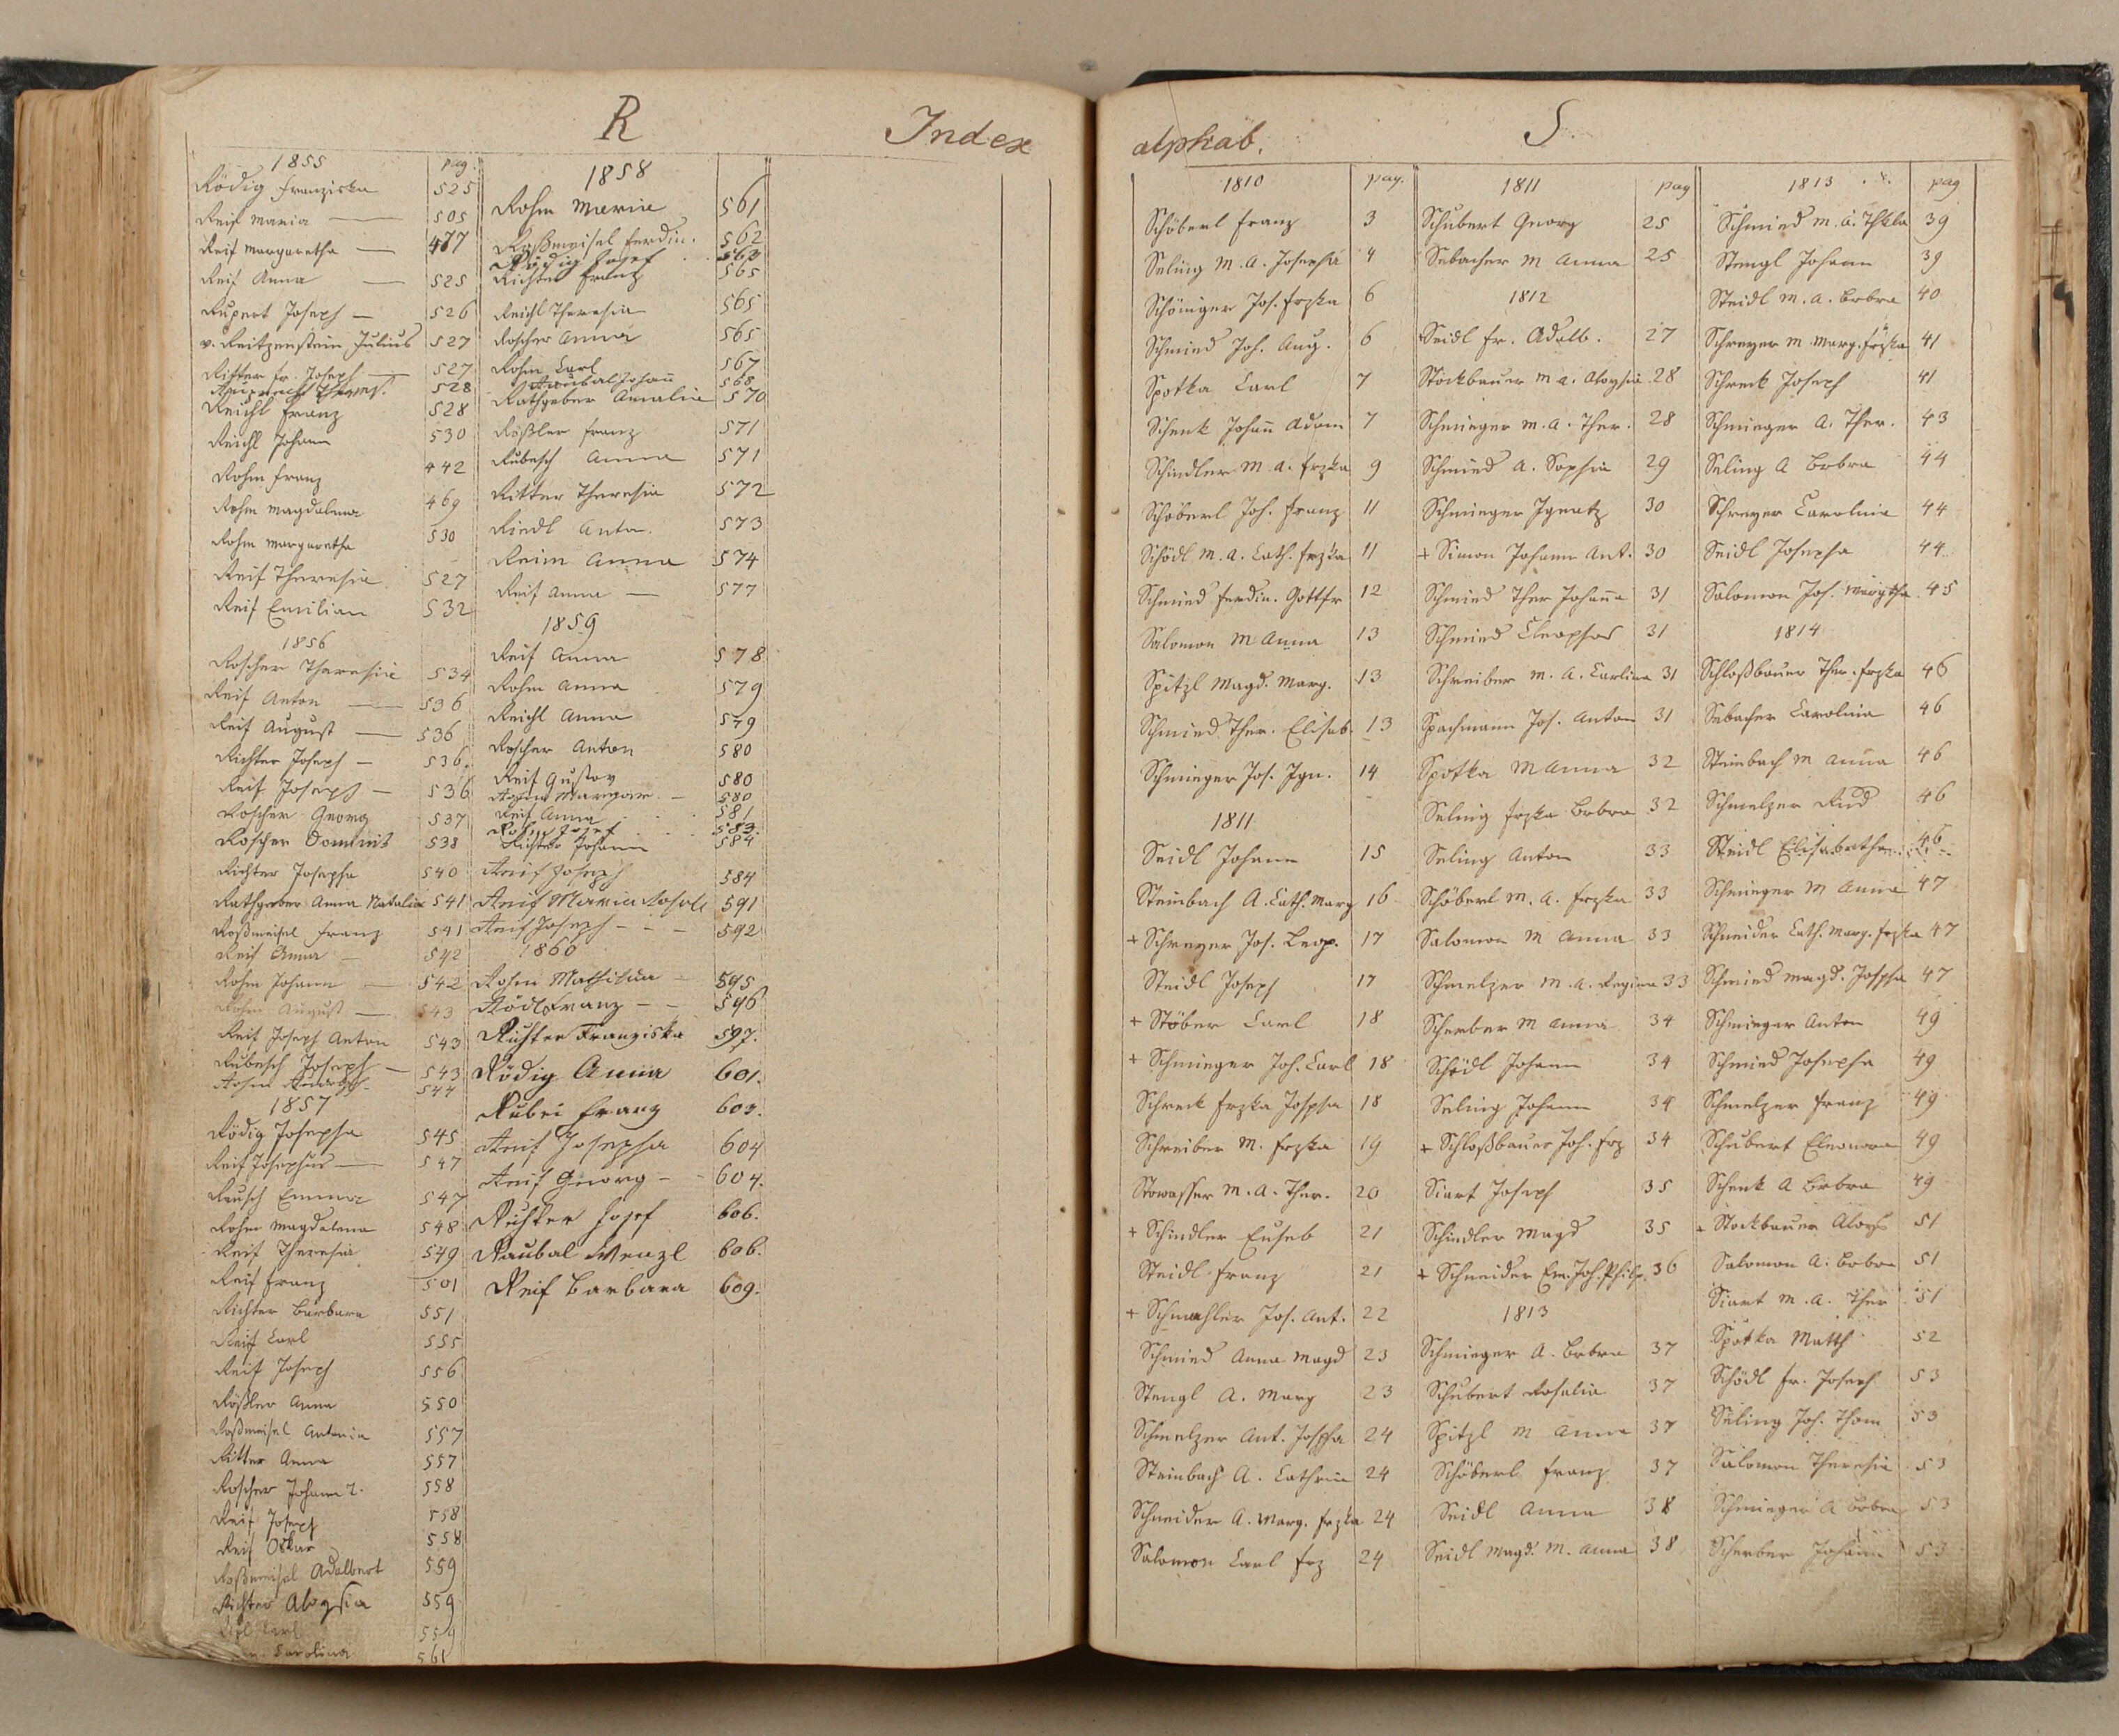 R
Index
1855 pag.
Rödig Franziska 525
Reif Maria — 505
Reif Margaretha — 477
Reif Anna — 525
Rupert Joseph — 526
v. Reitzenstein Julius 527
Ritter Fr. Joseph — 527
528
Reichl Franz 528
Reichl Johann 530
Rohm Franz 442
Rohm Magdalena 469
Rohm Margaretha 530
Reif Theresia 527
Reif Emilian 532
1856
Roscher Theresia 534
Reif Anton — 536
Reif August — 536
Richter Joseph — 536.
Reif Joseph — 536
Roscher Georg 537
Roscher Dominik 538
Richter Josepha 540
Rathgeber Anna Natalia 541
Roßmeisel Franz 541
Reif Anna — 542
Rohm Johann — 542
Rohm August — 543
Reif Joseph Anton 543
Rubesch Joseph — 543
Rohm 544
1857
Rödig Josepha 545
Reif Josephus — 547
Reusch Emma 547
Rohm Magdalena 548
Reif Theresia 549
Reif Franz 501
Richter Barbara 551
Reif Carl 555
Reif Joseph 556
Rößler Anna 550
Roßmeisel Antonia 557
Ritter Anna 557
Roscher Johann 558
Reif Joseph 558
Reif Oskar 558
Roßmeisel Adalbert 559
Richter Aloysia 559
Carl 559
Carolina 561
1858
Rohm Maria 561
Roßmeisel Ferdin. 562
Rödig Josef
Richter Franz 565
Reichl Theresia 565
Roscher Anna 565
Rohm Carl 567
Raubal Johann 568
Rathgeber Amalia 570
Rößler Franz 571
Rubesch Anna 571
Ritter Theresia 572
Riedl Anton. 573
Reim Anna 574
Reif Anna — 577
1859
Reif Anna 578
Rohm Anna 579
Reichl Anna 579
Roscher Anton 580
Reif Gustav 580
Rohm Margar. — 580
Reif Anna 581
Rohm Josef 583.
Richter Johann 584
Reif Joseph 584
Reif Maria Rosali 591
Reif Joseph - - - 592
1860
Rohm Mathilda — 595
Rödl Franz - - 596
Richter Franziska 597.
Rödig Anna 601.
Rubei Franz 603.
Reif Josepha 604
Reif Georg - - 604.
Richter Josef 606.
Raubal Wenzl 606.
Reif Barbara 609.
alphab.
S
1810 pag.
Schöberl Franz 3
Seling M. A. Josepha 4
Schöniger Jos. Frzka 6
Schmied Joh. Aug. 6
Spotka Carl 7
Schenk Johann Adam 7
Schindler M. A. Frzka 9
Schöberl Joh. Franz 11
Schödl M. A. Cath. Frzka 11
Schmied Ferdin. Gottfr 12
Salomon M Anna 13
Spitzl Magd. Marg. 13
Schmied Ther. Elisab. 13
Schmieger Jos. Ign. 14
1811
Seidl Johann 15
Steinbach A. Cath. Marg 16
+ Schreyer Jos. Leop. 17
Steidl Joseph 17
+ Stöber Carl 18
+ Schmieger Joh. Carl 18
Schreck Frzka Jospha 18
Schreiber M. Frzka 19
Stowasser M. A. Ther. 20
+ Schindler Euseb 21
Steidl Franz 21
+ Schmahler Jos. Ant. 22
Schmied Anna Magd 23
Stengl A. Marg 23
Schmelzer Ant. Jospha 24
Steinbach A. Cathrin 24
Schneider A. Marg. Frzka 24
Salomon Carl Frz 24
1811 pag
Schubert Georg 25
Sebacher M Anna 25
1812
Seidl Fr. Adalb. 27
Stockbauer M. A. Aloysia 28
Schmieger M. A. Ther. 28
Schmied A. Sophia 29
Schmieger Ignatz 30
+ Simon Johann Ant. 30
Schmied Ther Johanna 31
Schmied Cleophas 31
Schreiber M. A. Carlina 31
Spachmann Jos. Anton 31
Spotka M Anna 32
Seling Frzka Brbra 32
Seling Anton 33
Schöberl M. A. Frzka 33
Salomon M Anna 33
Schmelzer M. A. Regina 33
Scherber M Anna 34
Schödl Johann 34
Seling Johann 34
+ Schloßbauer Joh. Frz 34
Siart Joseph 35
Schindler Magd 35
+ Schneider Em. Joh. Philp. 36
1813
Schmieger A. Brbra 37
Schubert Rosalia 37
Spitzl M Anna 37
Schöberl Franz 37
Seidl Anna 38
Seidl Magd. M. Anna 38
1813 pag
Schmied M. A. Thkla 39
Stengl Johann 39
Steidl M. A. Brbra 40
Schreyer M. Marg. Frzka 41
Schreck Joseph 41
Schmieger A. Ther. 43
Seling A Brbra 44
Schreyer Carolina 44
Seidl Josepha 44
Salomon Jos. Margtha 45
1814
Schloßbauer Ther. Frzka 46
Sebacher Carolina 46
Steinbach M Anna 46
Schmelzer Rud 46
Steidl Elisabetha 46
Schmieger M Anna 47
Schneider Cath. Marg. Frzka 47
Schmied Magd. Jospha 47
Schmieger Anton 49
Schmied Josepha 49
Schmelzer Franz 49
Schubert Eleonora 49
Schenk A Brbra 49
+ Stockbauer Aloys 51
Salomon A. Brbra 51
Siart M. A. Ther 51
Spotka Matth 52
Schödl Fr. Joseph 53
Seling Joh. Thom 53
Salomon Theresia 53
Schmieger A Brbra 53
Scherber Johann 53